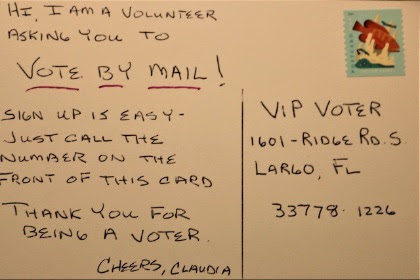 HI, I AM A VOLUNTEER
ASKING YOU TO
VOTE BY MAIL!
SIGN UP IS EASY-
JUST CALL THE
NUMBER ON THE
FRONT OF THIS CARD
THANK YOU FOR
BEING A VOTER.
CHEERS, CLAUDIA
VIP VOTER
1601-RIDGE RD. S
LARGO, FL
33778-1226